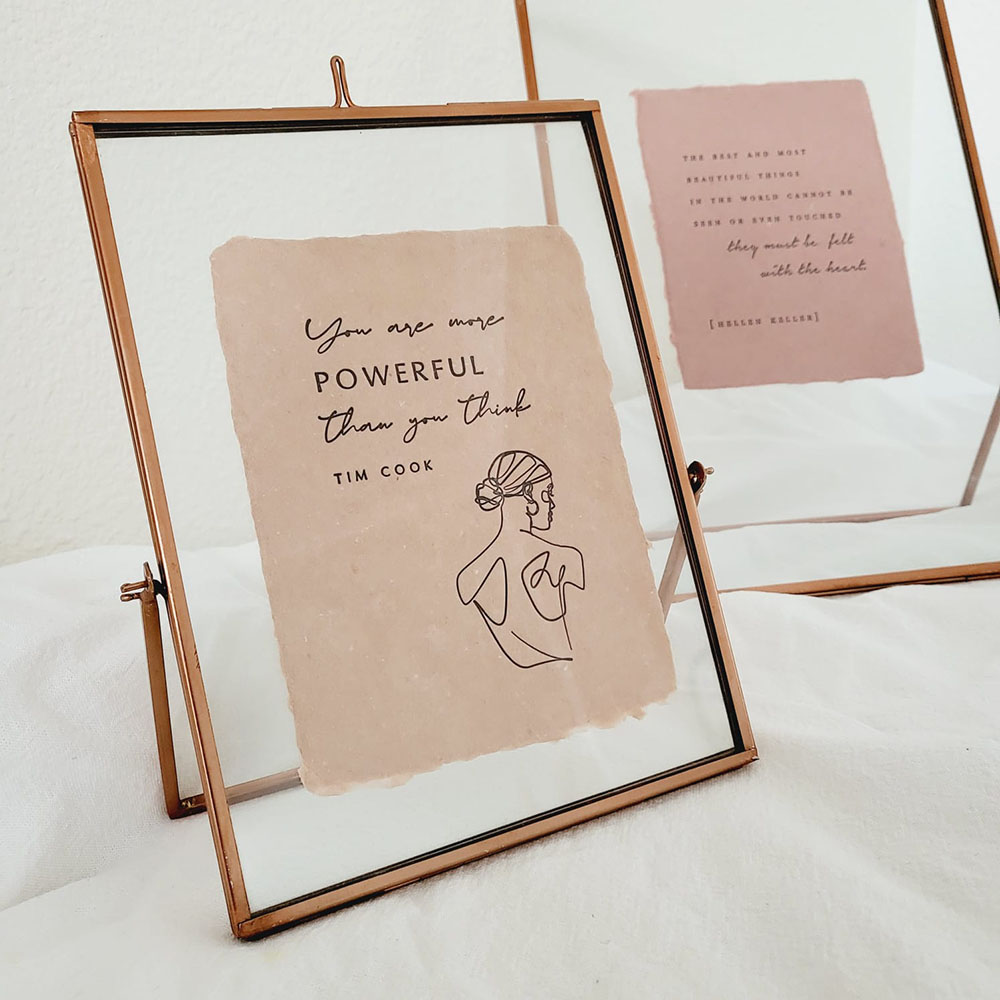 You are more
POWERFUL
than you think
TIM COOK
THE BEST AND MOST
BEAUTIFUL THINGS
IN THE WORLD CANNOT BE
SEEN OR EVEN TOUCHED
they must be felt
with the heart.
[HELLEN KELLER]